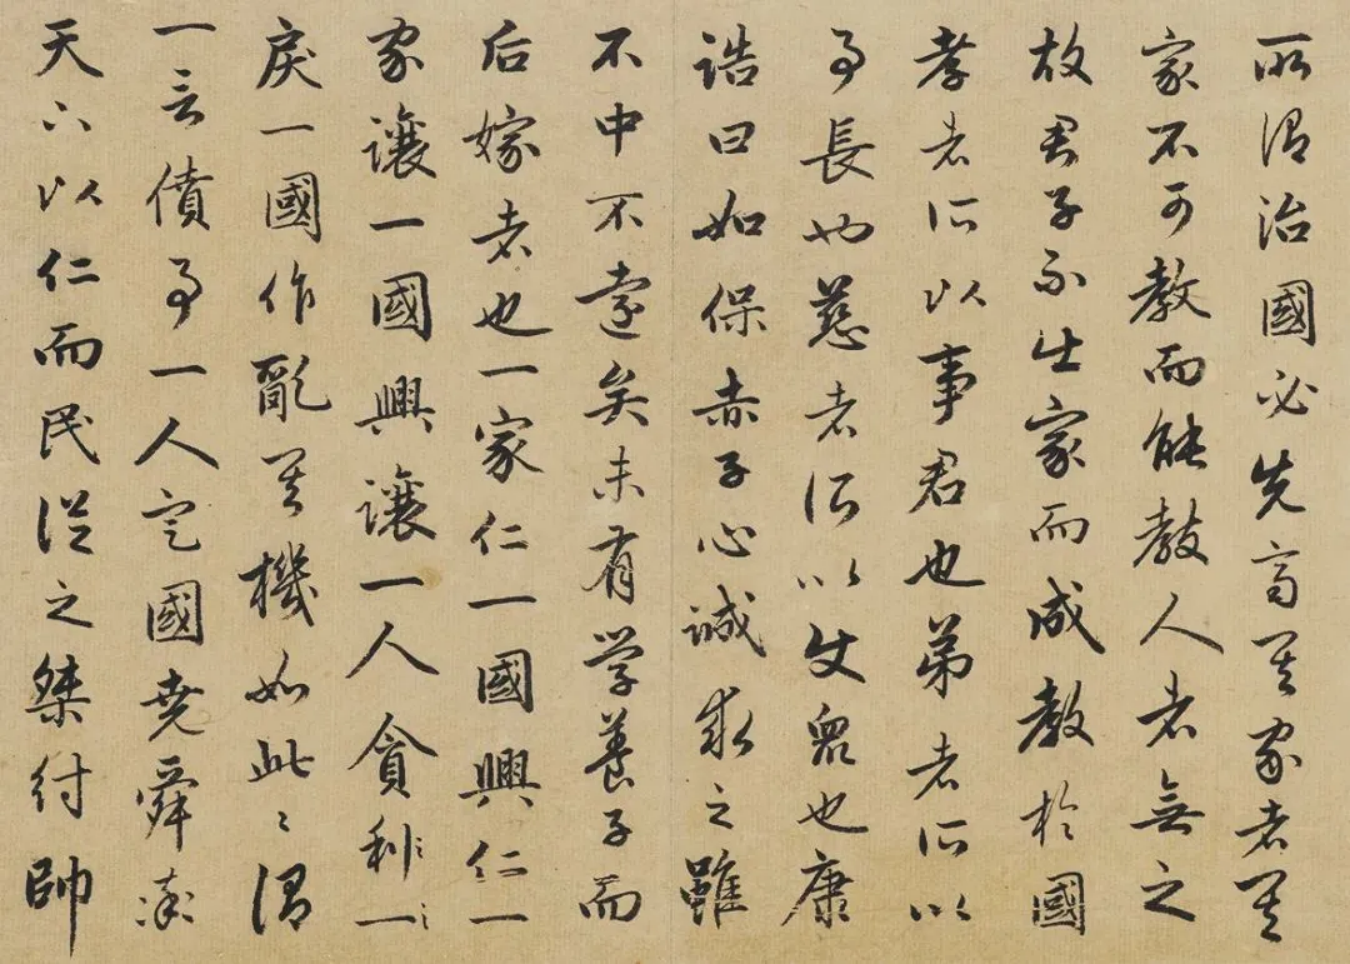 所謂治國必先齊其家者其
家不可教而能教人者無之
故君子不出家而成教於國
孝者所以事君也弟者所以
事長也慈者所以使眾也康
誥曰如保赤子心誠求之雖
不中不遠矣未有学養子而
后嫁者也一家仁一國興仁一
家讓一國興讓一人貪利一
戾一國作亂其機如此〻謂
一言僨事一人定國堯舜率
天下以仁而民從之桀紂帥